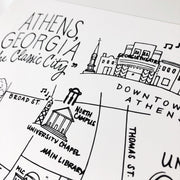 ATHENS,
GEORGIA
"The Classic City"
DOWNTOWN
ATHENS
BROAD ST.
NORTH
CAMPUS
UNIVERSITY CHAPEL
MAIN LIBRARY
THOMAS ST.
UN